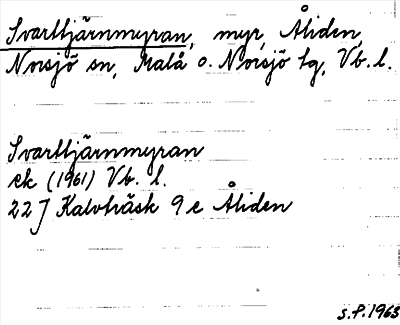 Svarttjärnmyran, myr, Åliden,
Norsjö sn, Malå o. Norsjö tg, Vb. l.
Svarttjärnmyran
ek (1961) Vb. l.
22 J Kalvträsk 9 e Åliden
S.P. 1963